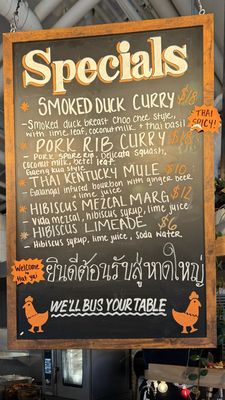 Specials
SMOKED DUCK CURRY $18
- Smoked duck breast choo chee style,
with lime leaf, coconut milk + thai basil
THAI SPICY!
PORK RIB CURRY $18
- PORK spare rib, delicata squash,
coconut milk, betel leaf
Gaeng kua style
THAI KENTUCKY MULE $10
- Galangal infused bourbon with ginger beer
+ lime juice
HIBISCUS MEZCAL MARG $12
- Vida mezcal, hibiscus syrup, lime juice
HIBISCUS LIMEADE $6
- Hibiscus syrup, lime juice, Soda water
Welcome that ya!
ยินดีต้อนรับสู่หาดใหญ่
WE'LL BUS YOUR TABLE